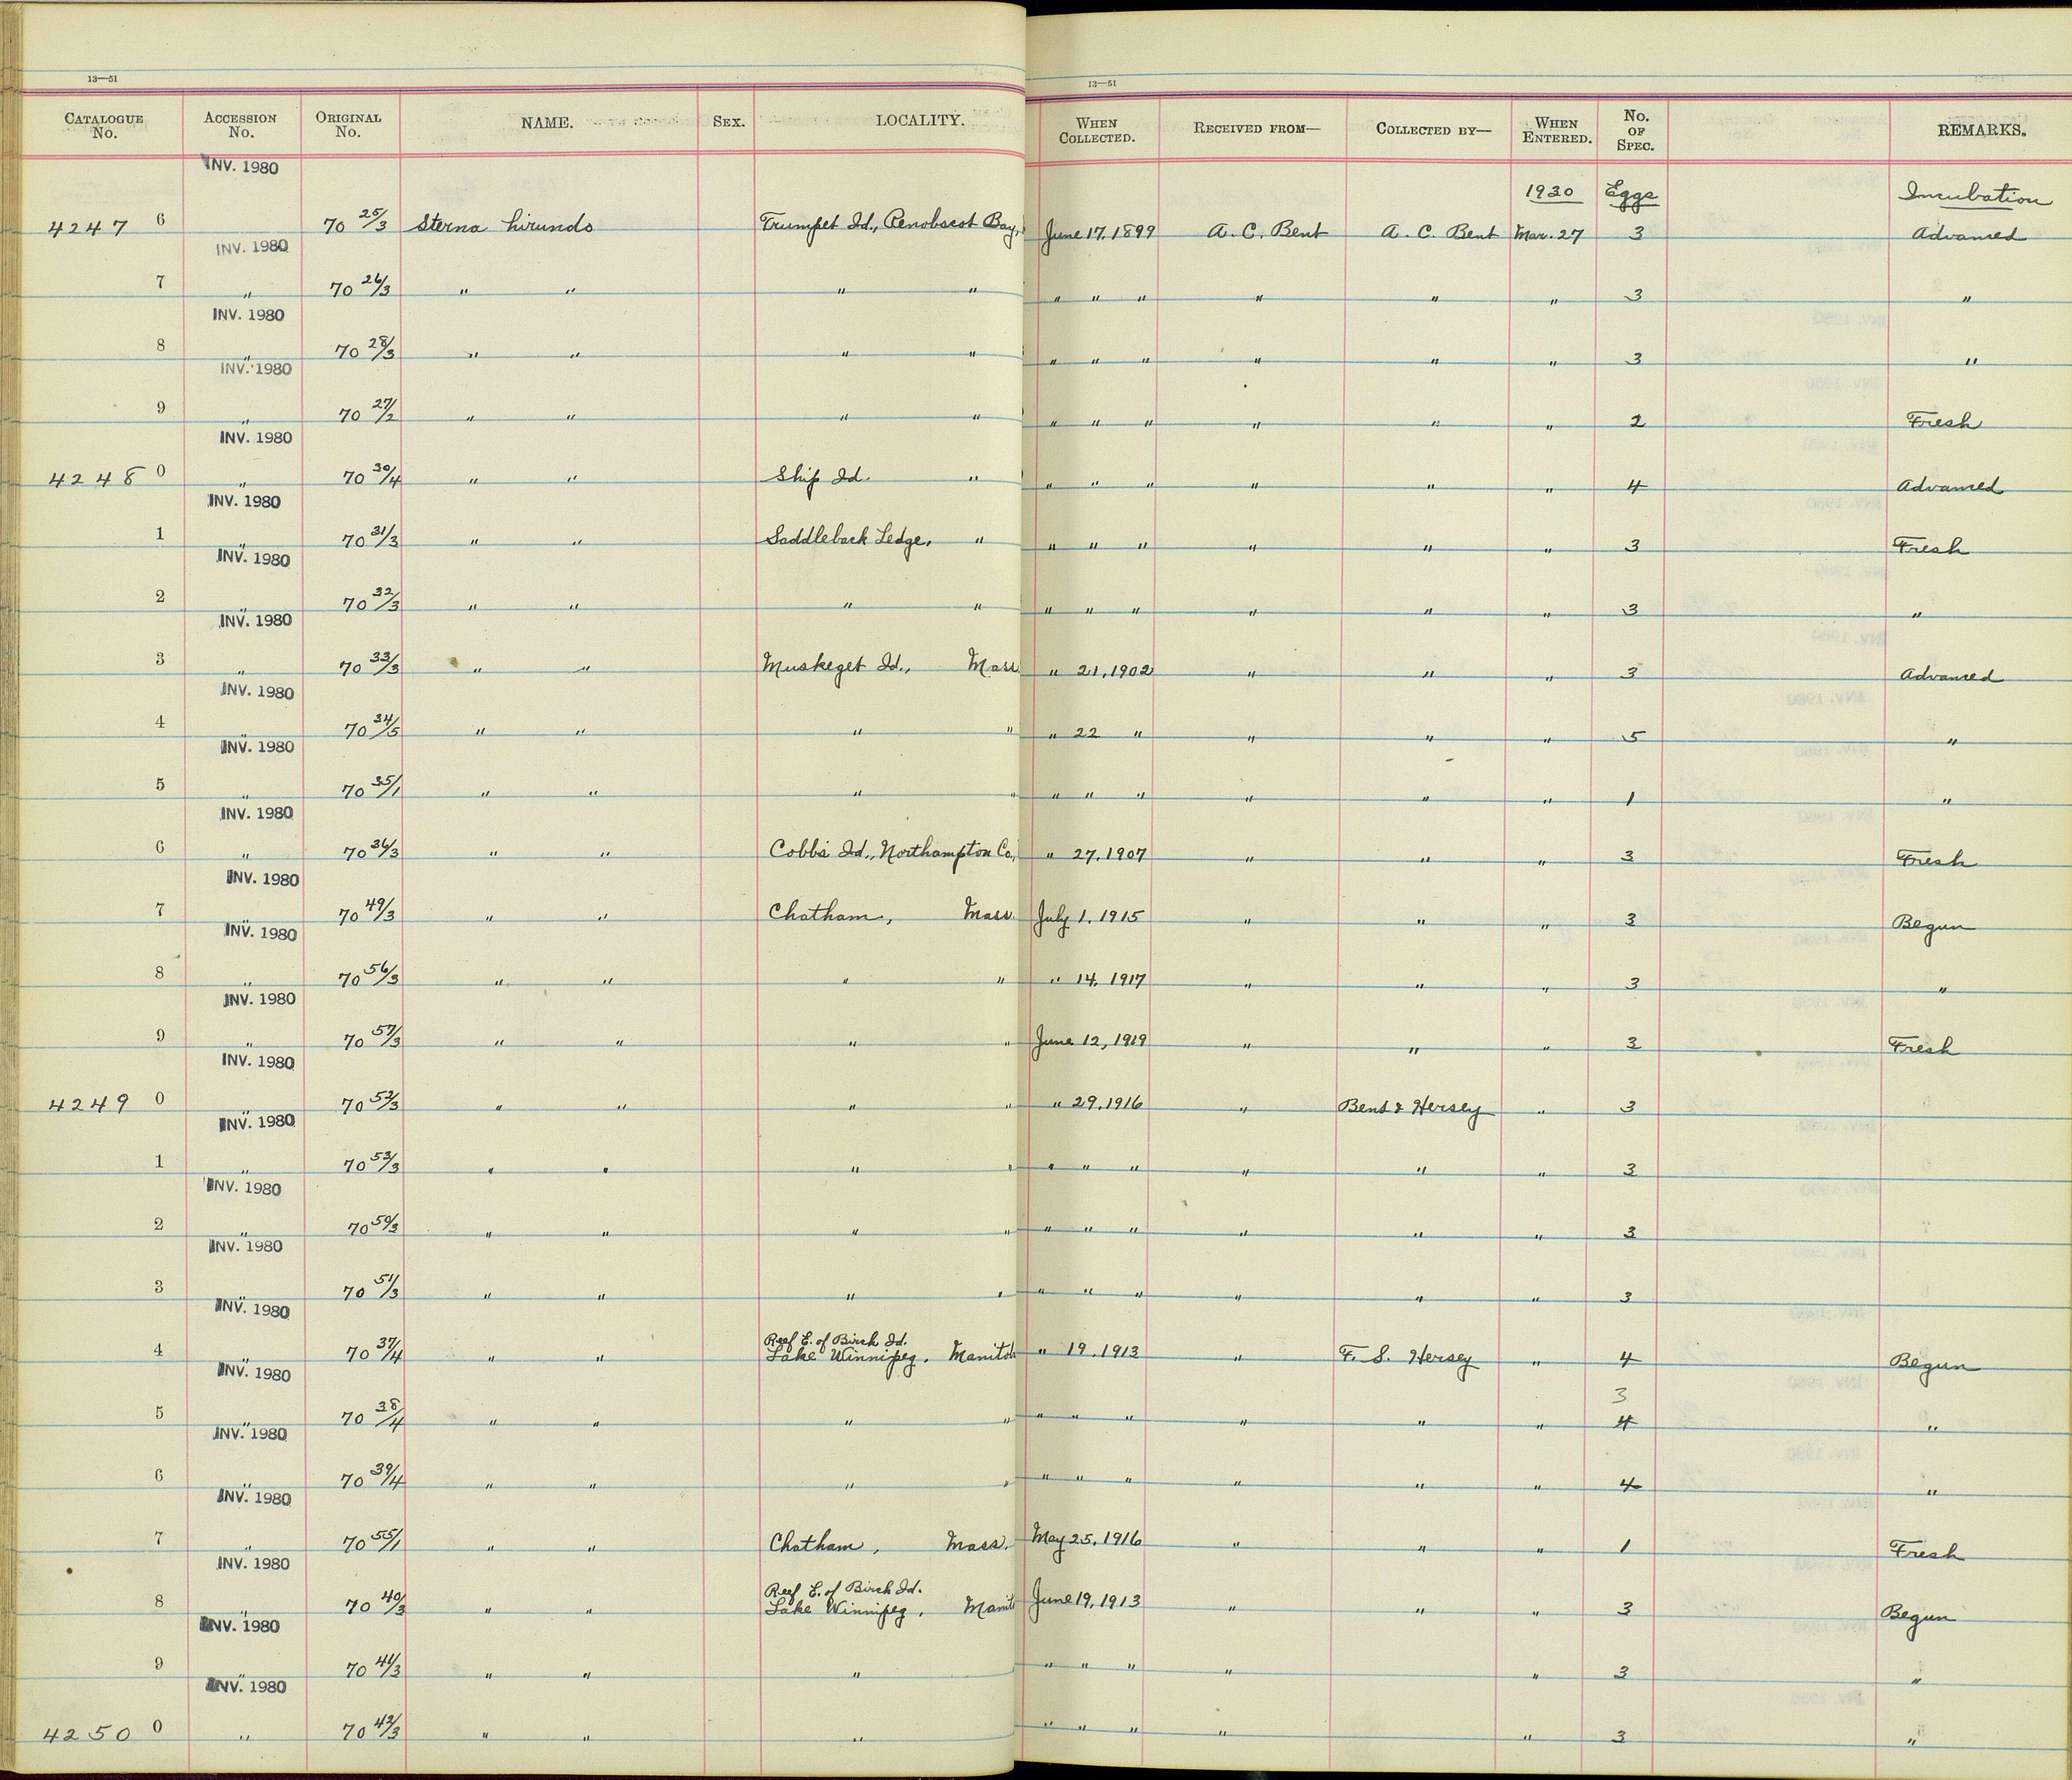 13—51 13—51
CATALOGUE No. ACCESSION No. ORIGINAL No. NAME. SEX. LOCALITY. WHEN COLLECTED. RECEIVED FROM— COLLECTED BY— WHEN ENTERED. No. OF SPEC. REMARKS.
INV. 1980
1930 Eggs Incubation
4247 6 70 25/3 Sterna hirundo Trumpet Id., Penobscot Bay, June 17, 1899 A. C. Bent A. C. Bent Mar. 27 3 Advanced
INV. 1980
7 " 70 26/3 " " " " " " " " " " 3 "
INV. 1980
8 " 70 28/3 " " " " " " " " " " 3 "
INV. 1980
9 " 70 27/2 " " " " " " " " " " 2 Fresh
INV. 1980
4248 0 " 70 30/4 " " Ship Id. " " " " " " " 4 Advanced
INV. 1980
1 " 70 31/3 " " Saddleback Ledge, " " " " " " " 3 Fresh
INV. 1980
2 " 70 32/3 " " " " " " " " " " 3 "
INV. 1980
3 " 70 33/3 " " Muskeget Id., Mass " 21, 1902 " " " 3 Advanced
INV. 1980
4 " 70 34/5 " " " " " 22 " " " " 5 "
INV. 1980
5 " 70 35/1 " " " " " " " " " " 1 "
INV. 1980
6 " 70 36/3 " " Cobb's Id., Northampton Co., " 27, 1907 " " " 3 Fresh
INV. 1980
7 " 70 49/3 " " Chatham, Mass. July 1, 1915 " " " 3 Begun
INV. 1980
8 " 70 56/3 " " " " " 14, 1917 " " " 3 "
INV. 1980
9 " 70 57/3 " " " " June 12, 1919 " " " 3 Fresh
INV. 1980
4249 0 " 70 52/3 " " " " " 29, 1916 " Bent & Hersey " 3
INV. 1980
1 " 70 53/3 " " " " " " " " " " 3
INV. 1980
2 " 70 50/3 " " " " " " " " " " 3
INV. 1980
3 " 70 51/3 " " " " " " " " " " 3
INV. 1980
Reef E. of Birch Id.
4 " 70 37/4 " " Lake Winnipeg, Manitob " 19, 1913 " F. S. Hersey " 4 Begun
INV. 1980
3
5 " 70 38/4 " " " " " " " " " " 4 "
INV. 1980
6 " 70 39/4 " " " " " " " " " " 4 "
INV. 1980
7 " 70 55/1 " " Chatham, Mass. May 25, 1916 " " " 1 Fresh
INV. 1980
Reef E. of Birch Id.
8 " 70 40/3 " " Lake Winnipeg, Manit June 19, 1913 " " " 3 Begun
INV. 1980
9 " 70 41/3 " " " " " " " " 3 "
INV. 1980
4250 0 " 70 42/3 " " " " " " " " 3 "